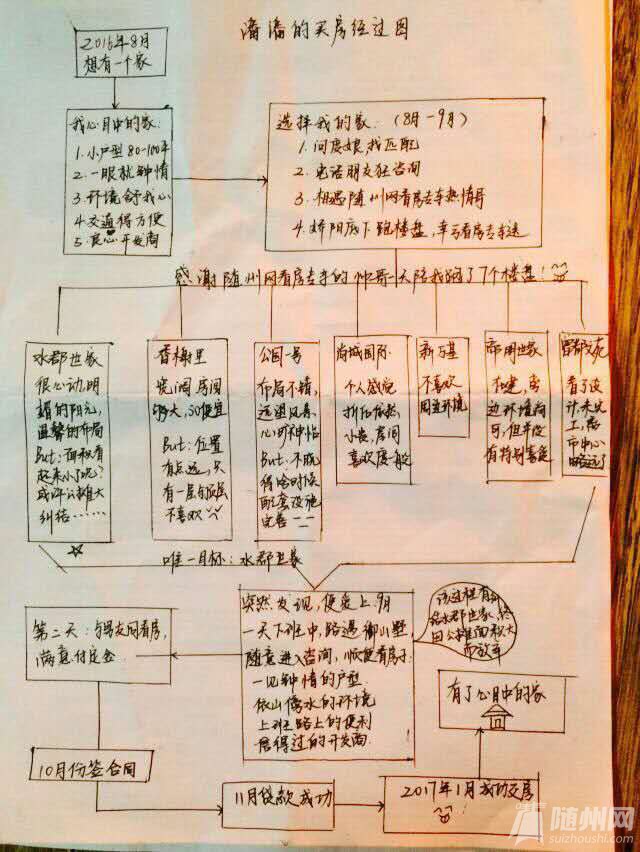 潘潘的买房经过图
2016年8月
想有一个家
我心目中的家:
1.小户型80-100平
2.一眼就钟情
3.环境合乎我心
4.交通得方便
5.良心开发商
选择我的家:(8月-9月)
1.问度娘,找匹配
2.电话朋友狂咨询
3.相遇随州网看房专车热情哥
4.娇阳底下跑楼盘,幸亏看房专车送
感谢随州网看房专车的帅哥一天陪我跑了7个楼盘!
水郡世家
很心动,明
媚的阳光,
温馨的布局
But:面积看
起来小了呢?
或许公摊大
纠结……
香梅里
宽阔,房间
够大,50便宜
But:位置
有点远,只
有一层与顶层
不喜欢
公园一号
布局不错,
远望风景,
心旷神怡
But:不晓
得啥时候
配套设施
完善——
尚城国际
个人感觉
拆阳依然
小贵,房间
喜欢度一般
新万基
不喜欢
周边环境
帝用世家
相处,周
边环境尚
可,但并没
有特别喜爱
看了设
计未定
上,离
市中心
略远了
唯一目标:水郡世家
突然发现,便爱上.9月
一天下班中,路遇御山墅
随意进入咨询,顺便看房子
一见钟情的户型
依山傍水的环境
上班路上的便利
信得过的开发商
该过程有
水郡世家,终
因公摊面积大
而放弃
第二天:与男友同看房,
满意付定金
有了心目中的家
10月份签合同
11月贷款成功
2017年1月成功交房
!
随州网
suizhoushi.com